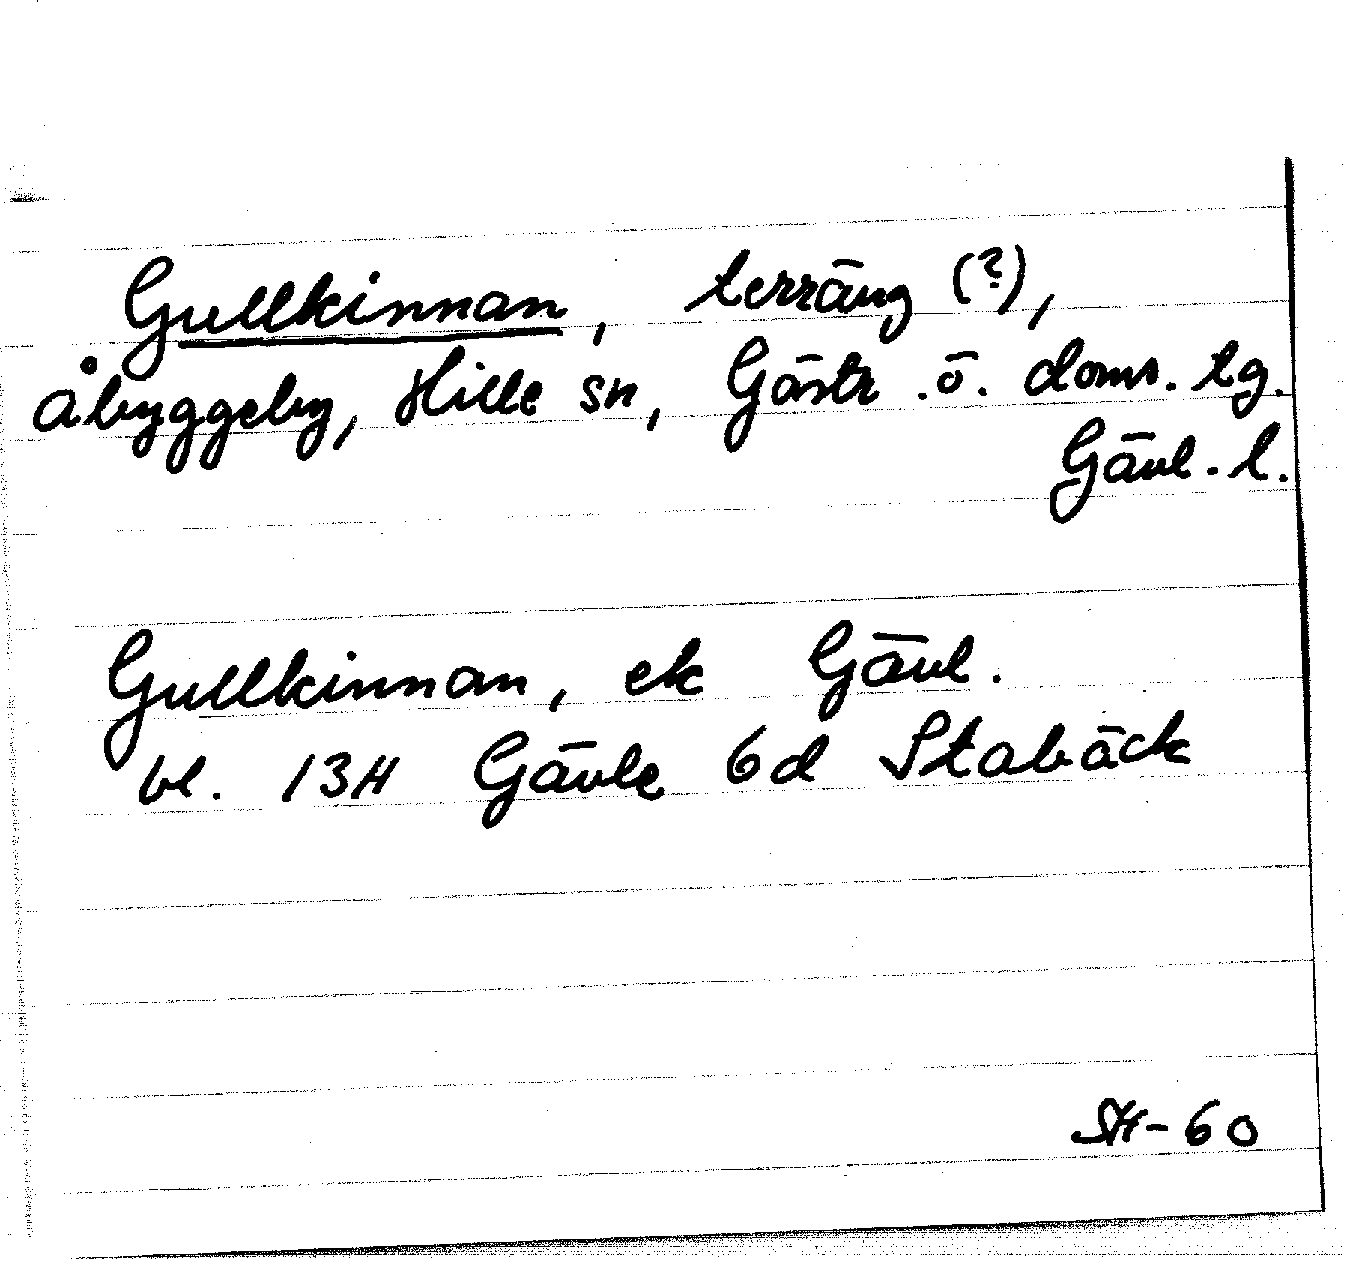 Gullkinnan, terräng (?),
Åbyggeby, Hille sn, Gästr. ö. doms. tg.
Gävl. l.
Gullkinnan, ek Gävl.
bl. 13H Gävle 6d Stabäck
SH-60